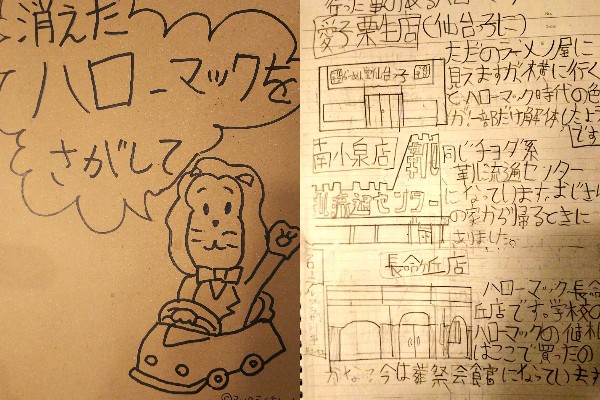 消えた
ハローマックを
さがして
行った事のあるハローマック
愛子栗生店(仙台っ子に)
ただのラーメン屋に
見えますが横に行く
とハローマック時代の色
が!一部だけ解体したよう
です
らーめん堂仙台っ子
南小泉店
同じチヨダ系
靴流通センター
になっています。
の家から帰るときに
ありました。
靴流通センター
長命ヶ丘店
ハローマック長命
丘店です。学校の
ハローマックの値札
はここで買ったの
かな?今は葬祭会館になっています